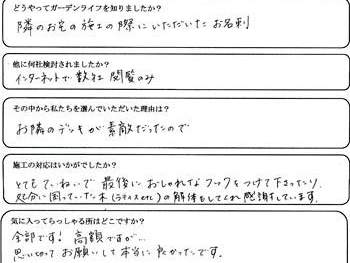 どうやってガーデンライフを知りましたか？
隣のお宅の施工の際にいただいたお名刺
他に何社検討されましたか？
インターネットで数社閲覧のみ
その中から私たちを選んでいただいた理由は？
お隣のデッキが素敵だったので
施工の対応はいかがでしたか？
とてもていねいで最後におしゃれなフックをつけて下さったり、
処分に困っていた木(ラティスetc)の解体もしてくれ感謝しています。
気に入ってらっしゃる所はどこですか？
全部です！高額ですが…
思い切ってお願いして本当に良かったです。